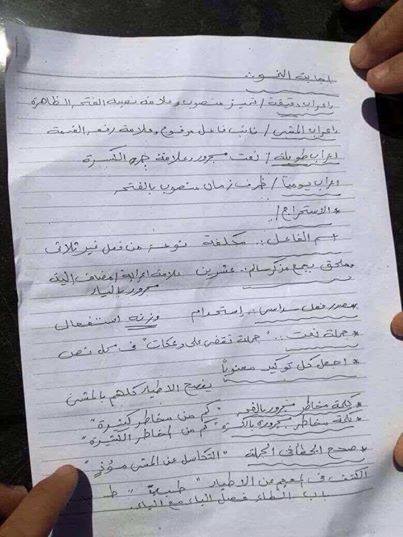 اجابة النحو:
١) اعراب دقيقة / تمييز منصوب وعلامة نصبه الفتحة الظاهرة
٢) اعراب المشى / نائب فاعل مرفوع وعلامة رفعه الضمة
اعراب طويلة / نعت مجرور وعلامة جره الكسرة
اعراب يومياً / ظرف زمان منصوب بالفتحة
* الاستخراج /
اسم الفاعل :. مكلفة نوعه من فعل غير ثلاثى
ملحق بجمع مذكر سالم :. عشرين علامة اعرابه مضاف اليه
مجرور بالياء
مصدر فعل سداسى :. إستخدام وزنه استفعال
* جملة نعت :. "جملة تقضى على" فى محل نصب
* اجعل كل توكيد معنوياً
ينصح الاطباء كلهم بالمشى
* كلمة مخاطر مجرور بالفتحة "كم من مخاطر كثيرة"
* كلمة مخاطر مجرورة بالكسرة "كم من المخاطر الكثيرة"
* صحح الخطأ فى الجملة "التكاسل عن المشى مؤذٍ"
الكشف فى المعجم عن الاطباء " طبب " ط
باب الطاء فصل الباء مع الباء